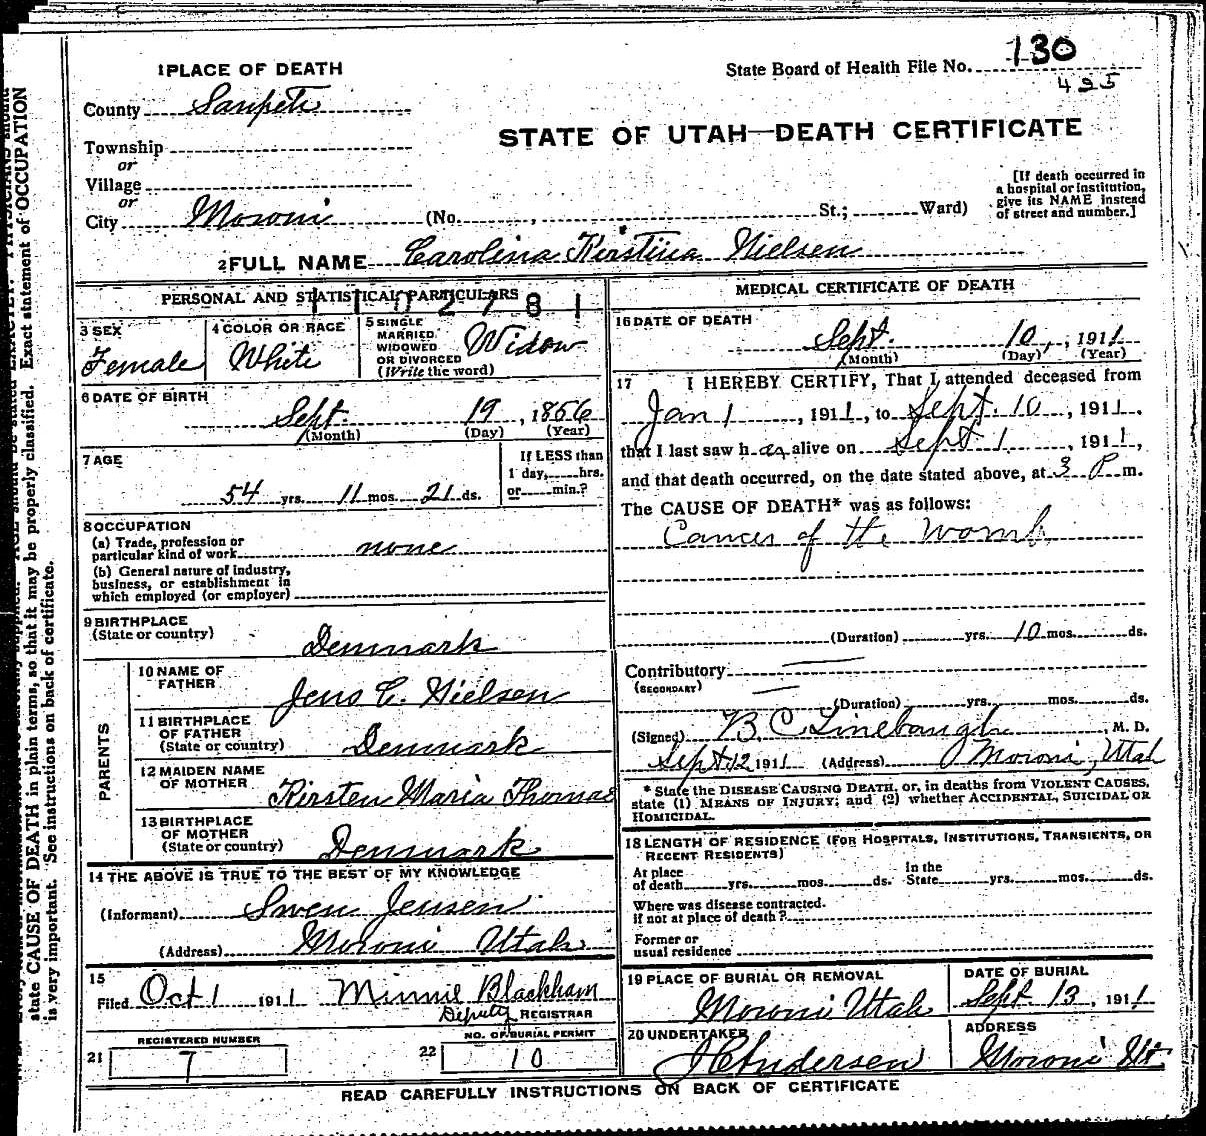 1 PLACE OF DEATH
State Board of Health File No. 130
425
County Sanpete
STATE OF UTAH—DEATH CERTIFICATE
Township
or
Village
or
City Moroni (No. , St.; Ward)
[If death occurred in
a hospital or institution,
give its NAME instead
of street and number.]
2 FULL NAME Carolina Kirstina Nielsen
PERSONAL AND STATISTICAL PARTICULARS
3 SEX
Female
4 COLOR OR RACE
White
5 SINGLE
MARRIED
WIDOWED
OR DIVORCED
(Write the word)
Widow
6 DATE OF BIRTH
Sept. 19, 1856
(Month) (Day) (Year)
7 AGE
54 yrs. 11 mos. 21 ds.
If LESS than
1 day, hrs.
or min.?
8 OCCUPATION
(a) Trade, profession or
particular kind of work none
(b) General nature of industry,
business, or establishment in
which employed (or employer)
9 BIRTHPLACE
(State or country)
Denmark
PARENTS
10 NAME OF
FATHER
Jens C. Nielsen
11 BIRTHPLACE
OF FATHER
(State or country)
Denmark
12 MAIDEN NAME
OF MOTHER
Kirsten Maria Thomas
13 BIRTHPLACE
OF MOTHER
(State or country)
Denmark
14 THE ABOVE IS TRUE TO THE BEST OF MY KNOWLEDGE
(Informant) Swen Jensen
(Address) Moroni Utah
15
Filed Oct 1 1911 Minnie Blackham
Deputy REGISTRAR
REGISTERED NUMBER
21 7
NO. OF BURIAL PERMIT
22 10
MEDICAL CERTIFICATE OF DEATH
16 DATE OF DEATH
Sept. 10, 1911
(Month) (Day) (Year)
17 I HEREBY CERTIFY, That I attended deceased from
Jan 1, 1911, to Sept. 10, 1911,
that I last saw her alive on Sept 1, 1911,
and that death occurred, on the date stated above, at 3 P m.
The CAUSE OF DEATH* was as follows:
Cancer of the womb
(Duration) yrs. 10 mos. ds.
Contributory
(SECONDARY)
(Duration) yrs. mos. ds.
(Signed) B. C. Linebaugh, M. D.
Sept 12 1911 (Address) Moroni, Utah
* State the DISEASE CAUSING DEATH, or, in deaths from VIOLENT CAUSES,
state (1) MEANS OF INJURY; and (2) whether ACCIDENTAL, SUICIDAL OR
HOMICIDAL.
18 LENGTH OF RESIDENCE (FOR HOSPITALS, INSTITUTIONS, TRANSIENTS, OR
RECENT RESIDENTS)
At place
of death yrs. mos. ds.
In the
State yrs. mos. ds.
Where was disease contracted.
if not at place of death?
Former or
usual residence
19 PLACE OF BURIAL OR REMOVAL
Moroni Utah
DATE OF BURIAL
Sept. 13, 1911
20 UNDERTAKER
Andersen
ADDRESS
Moroni Ut.
READ CAREFULLY INSTRUCTIONS ON BACK OF CERTIFICATE
Exact statement of OCCUPATION
state CAUSE OF DEATH in plain terms, so that it may be properly classified.
is very important. See instructions on back of certificate.